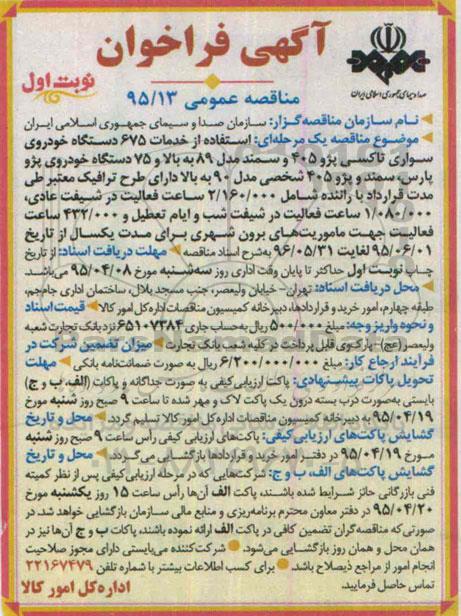 آگهی فراخوان
صدا و سیمای جمهوری اسلامی ایران
نوبت اول
مناقصه عمومی ۹۵/۱۳
نام سازمان مناقصه‌گزار: سازمان صدا و سیمای جمهوری اسلامی ایران
موضوع مناقصه یک مرحله‌ای: استفاده از خدمات ۶۷۵ دستگاه خودروی
سواری تاکسی پژو ۴۰۵ و سمند مدل ۸۹ به بالا و ۷۵ دستگاه خودروی پژو
پارس، سمند و پژو ۴۰۵ شخصی مدل ۹۰ به بالا دارای طرح ترافیک معتبر طی
مدت قرارداد با راننده شامل ۲/۱۶۰/۰۰۰ ساعت فعالیت در شیفت عادی،
۱/۰۸۰/۰۰۰ ساعت فعالیت در شیفت شب و ایام تعطیل و ۴۳۲/۰۰۰ ساعت
فعالیت جهت ماموریت‌های برون شهری برای مدت یکسال از تاریخ
۹۵/۰۶/۰۱ لغایت ۹۶/۰۵/۳۱ به‌شرح اسناد مناقصه مهلت دریافت اسناد: از تاریخ
چاپ نوبت اول حداکثر تا پایان وقت اداری روز سه‌شنبه مورخ ۹۵/۰۴/۰۸ می‌باشد.
محل دریافت اسناد: تهران- خیابان ولیعصر، جنب مسجد بلال، ساختمان اداری جام‌جم،
طبقه چهارم، امور خرید و قراردادها، دبیرخانه کمیسیون مناقصات اداره کل امور کالا قیمت اسناد
و نحوه واریز وجه: مبلغ ۵۰۰/۰۰۰ ریال به حساب جاری ۶۵۱۰۷۳۸۴ نزد بانک تجارت شعبه
ولیعصر(عج)- پارک‌وی قابل پرداخت در کلیه شعب بانک تجارت میزان تضمین شرکت در
فرآیند ارجاع کار: مبلغ ۶/۲۰۰/۰۰۰/۰۰۰ ریال به صورت ضمانت‌نامه بانکی مهلت
تحویل پاکات پیشنهادی: پاکت ارزیابی کیفی به صورت جداگانه و پاکات (الف، ب و ج)
بایستی به‌صورت درب بسته درون یک پاکت لاک و مهر شده تا ساعت ۹ صبح روز شنبه مورخ
۹۵/۰۴/۱۹ به دبیرخانه کمیسیون مناقصات اداره کل امور کالا تسلیم گردد. محل و تاریخ
گشایش پاکت‌های ارزیابی کیفی: پاکت‌های ارزیابی کیفی رأس ساعت ۹ صبح روز شنبه
مورخ ۹۵/۰۴/۱۹ در دفتر امور خرید و قراردادها بازگشایی می‌گردد. محل و تاریخ
گشایش پاکت‌های الف، ب و ج: شرکت‌هایی که در مرحله ارزیابی کیفی پس از نظر کمیته
فنی بازرگانی حائز شرایط شده باشند، پاکت الف آن‌ها رأس ساعت ۱۵ روز یکشنبه مورخ
۹۵/۰۴/۲۰ در دفتر معاون محترم برنامه‌ریزی و منابع مالی سازمان بازگشایی خواهد شد. در
صورتی‌که مناقصه‌گران تضمین کافی در پاکت الف ارائه نموده باشند، پاکات ب و ج آن‌ها نیز در
همان محل و همان روز بازگشایی می‌شود. شرکت‌کننده می‌بایستی دارای مجوز صلاحیت
انجام امور از مراجع ذیصلاح باشد. برای کسب اطلاعات بیشتر با شماره تلفن ۲۲۱۶۷۴۷۹
تماس حاصل فرمایید.
اداره کل امور کالا